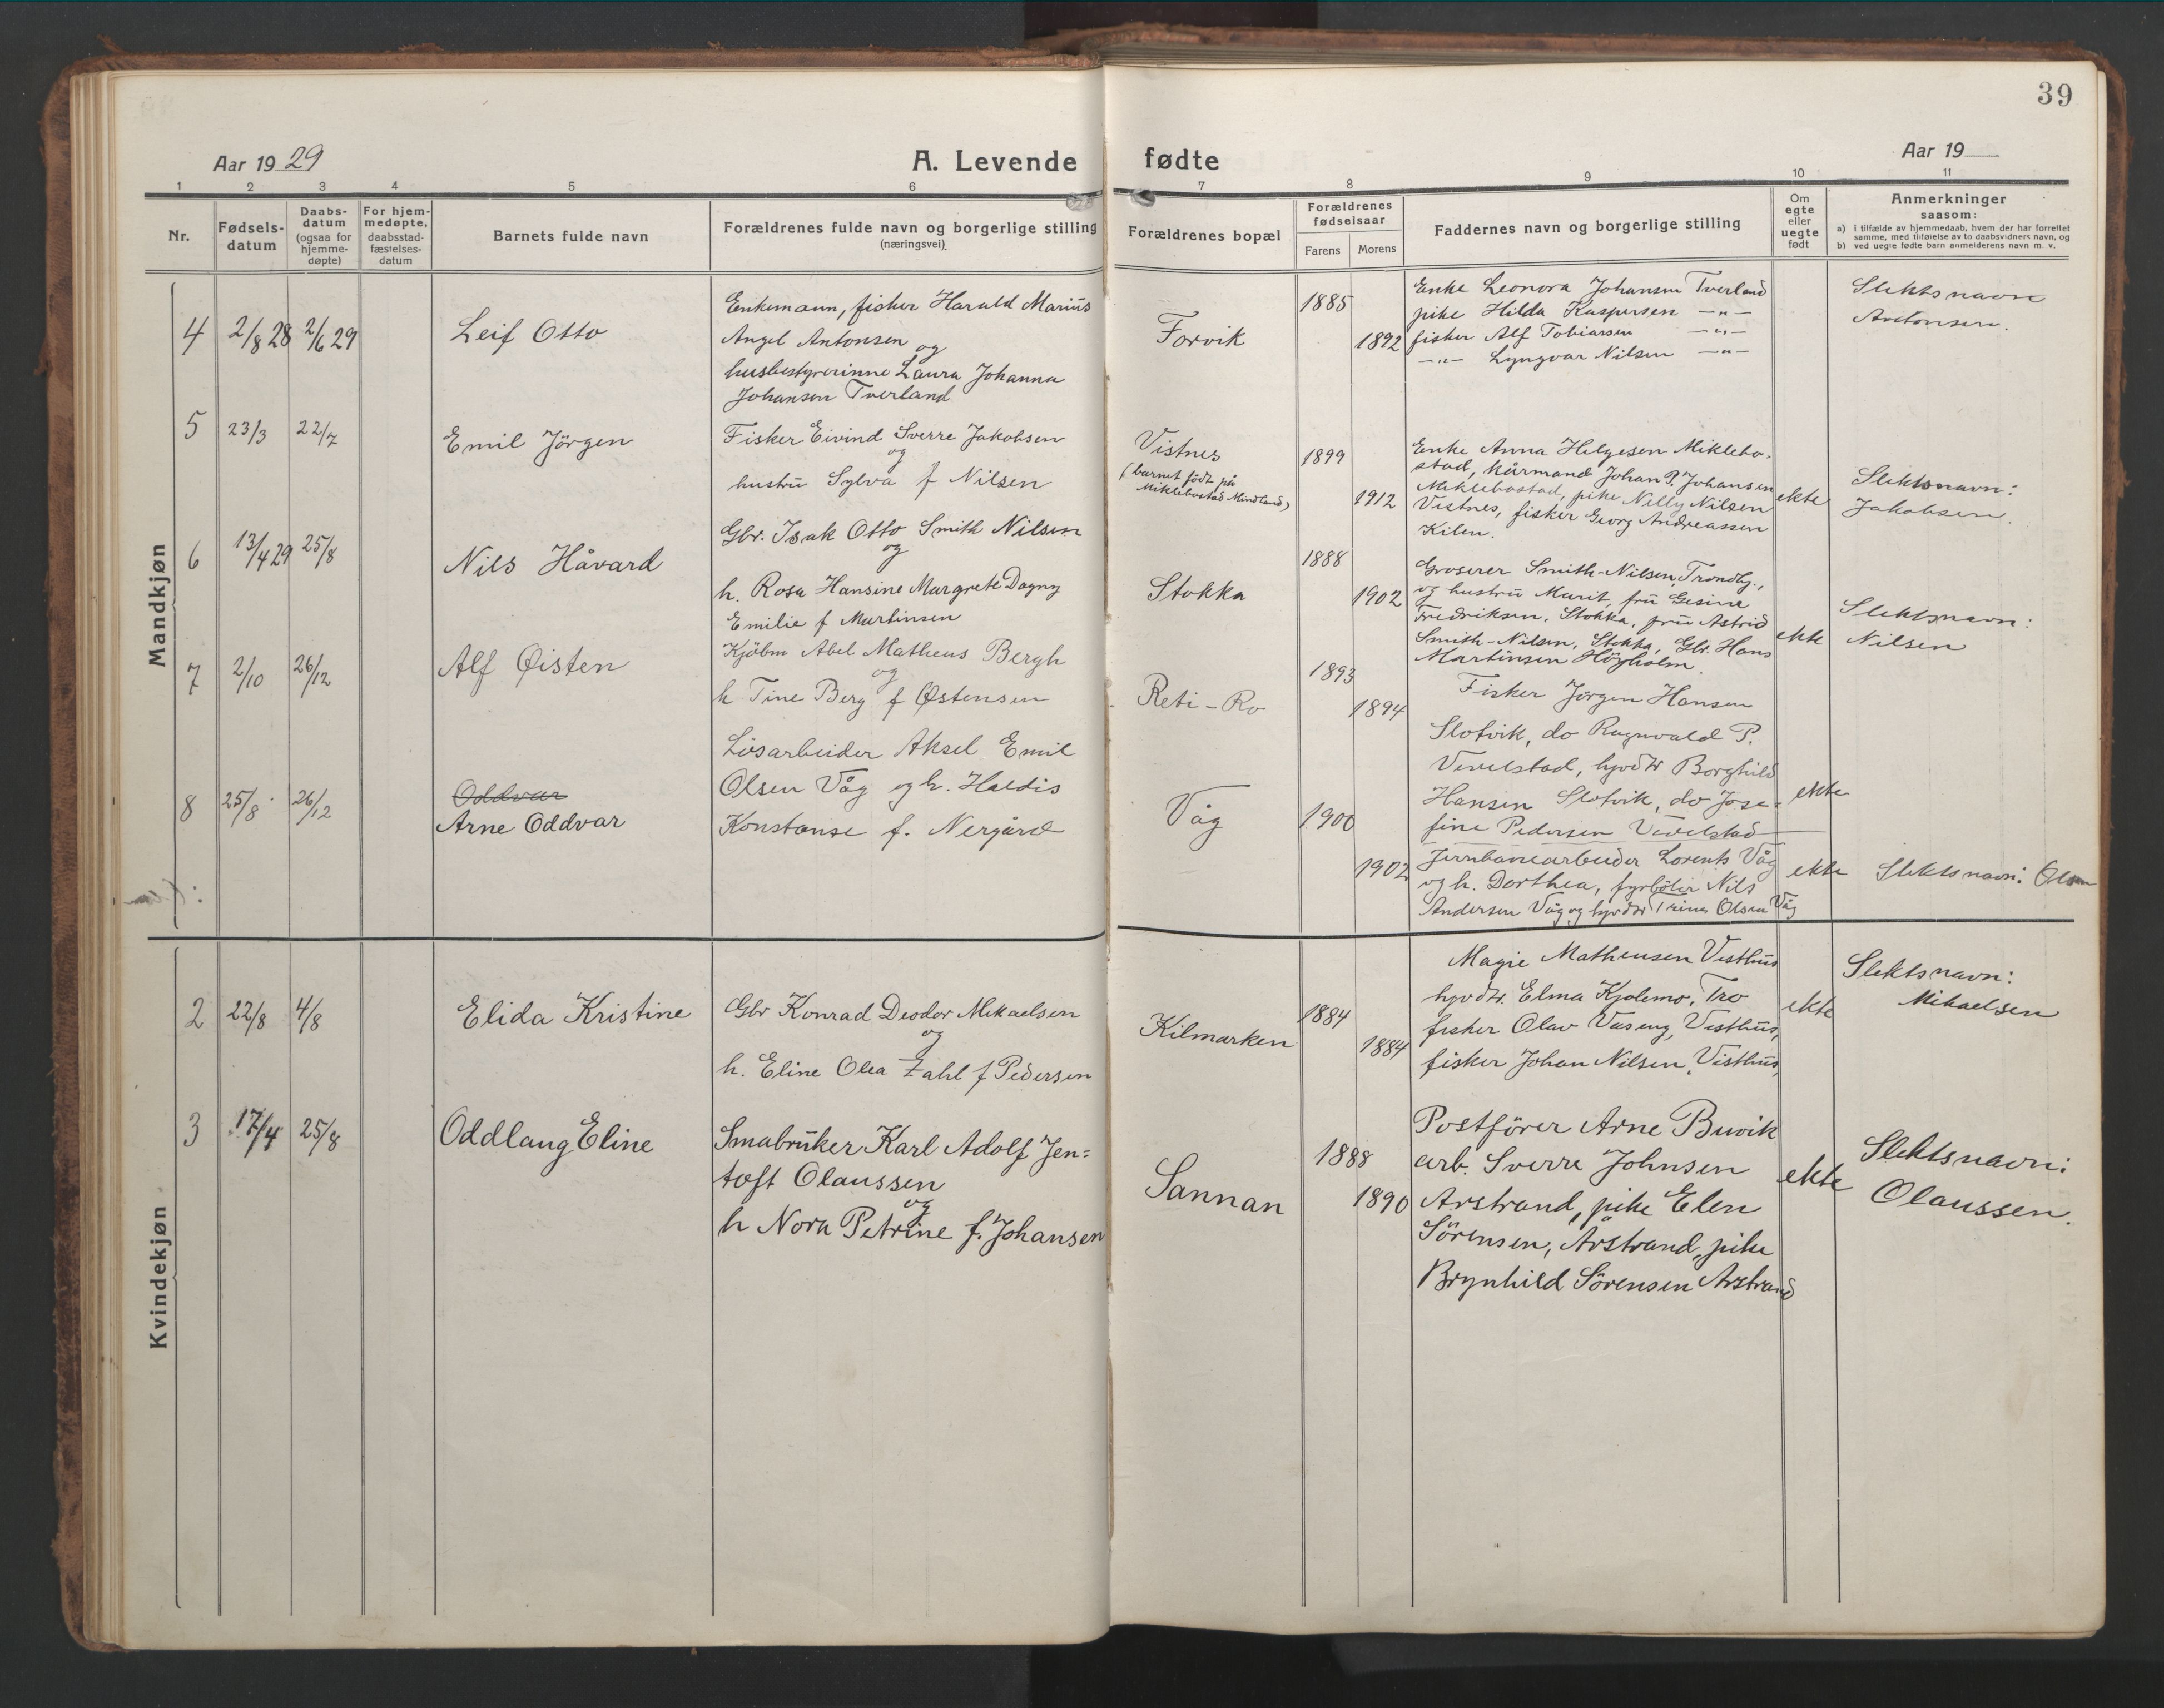 39
Aar 1929
A. Levende fødte
Aar 19
1 2 3 4 5 6 7 8 9 10 11
Nr.
Fødsels-
datum
Daabs-
datum
(ogsaa for
hjemme-
døpte)
For hjem-
medøpte,
daabsstad-
fæstelses-
datum
Barnets fulde navn
Forældrenes fulde navn og borgerlige stilling
(næringsvei).
Forældrenes bopæl
Forældrenes
fødselsaar
Farens Morens
Faddernes navn og borgerlige stilling
Om
egte
eller
uegte
født
Anmerkninger
saasom:
a) i tilfælde av hjemmedaab, hvem der har forrettet
samme, med tilføielse av to daabsvidners navn, og
b) ved uegte fødte barn anmelderens navn m. v.
Mandkjøn
4 2/8 28 2/6 29
Leif Otto
Enkemann, fisker Harald Marius
Angel Antonsen
og
husbestyrerinne Laura Johanna
Johansen Tverland
Forvik
1885
1892
Enke Leonora Johansen Tverland
pike Hilda Kaspersen —"—
fisker Alf Tobiassen —"—
—"— Lyngvar Nilsen —"—
Slektsnavn
Antonsen.
5 23/3 22/7
Emil Jörgen
Fisker Eivind Sverre Jakobsen
og
hustru Sylva f Nilsen
Vistnes
(barnet födt på
Miklebostad Mindland)
1899
1912
Enke Anna Helgesen Miklebo-
stad, kårmand Johan P. Johansen
Miklebostad, pike Nelly Nilsen
Vistnes, fisker Georg Andreassen
Kilen.
ekte
Slektsnavn:
Jakobsen.
6 13/4 29 25/8
Nils Håvard
Gbr. Isak Otto Smith Nilsen
og
h. Rosa Hansine Margrete Dagny
Emilie f Martinsen
Stokka
1888
1902
Groserer Smith-Nilsen, Trondhj.,
og hustru Marit, fru Gesine
Fredriksen, Stokka, fru Astrid
Smith-Nilsen, Stokka, Gbr. Hans
Martinsen Högholm
ekte
Slektsnavn:
Nilsen
7 2/10 26/12
Alf Øisten
Kjöbm Abel Matheus Bergh
og
h Tine Berg f Østensen
Reti-Ro
1893
1894
Fisker Jörgen Hansen
Slotvik, do Ragnvald P.
Vevelstad, hjvdtr Borghild
Hansen Slotvik, do Jose-
fine Pedersen Vevelstad
ekte
8 25/8 26/12
Oddvar
Arne Oddvar
Lösarbeider Aksel Emil
Olsen Våg og h. Haldis
Konstanse f. Nergård
Våg
1900
1902
Jernbanearbeider Lorents Våg
og h. Dorthea, fyrböter Nils
Andersen Våg og hjvdtr Trine Olsen Våg
ekte
Slektsnavn: Olsen
Kvindekjøn
2 22/8 4/8
Elida Kristine
Gbr Konrad Deodor Mikaelsen
og
h. Eline Olea Zahl f Pedersen
Kilmarken
1884
1884
Magie Matheusen Visthus
hjvdtr. Elma Kjolemo, Tro
fisker Olav Vaseng, Visthus,
fisker Johan Nilsen, Visthus,
ekte
Slektsnavn:
Mikaelsen
3 17/4 25/8
Oddlaug Eline
Smabruker Karl Adolf Jen=
toft Olaussen
og
h Nora Petrine f. Johansen
Sannan
1888
1890
Postförer Arne Buvik
arb. Sverre Johnsen
Arstrand, pike Elen
Sörensen, Årstrand, pike
Brynhild Sörensen Arstrand
ekte
Slektsnavn:
Olaussen.